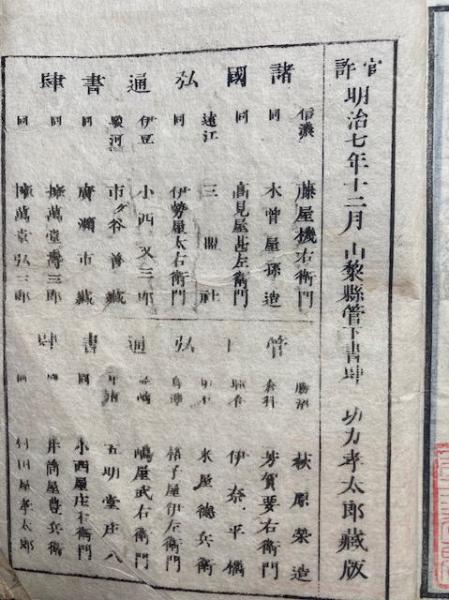 官許 明治七年十二月 山棃縣管下書肆 功力孝太郎藏版
諸國弘通書肆
信濃 藤屋機右衛門
同 木曽屋孫造
同 高見屋甚左衛門
遠江 三盟社
同 伊勢屋太右衛門
伊豆 小西又三郎
駿河 市ケ谷善藏
同 廣瀬市藏
同 萬堂三郎
同 萬堂弘三郎
管下弘通書肆
勝沼 萩原榮造
芳賀要右衛門
伊奈平橘
水屋徳兵衛
格子屋伊左衛門
嶋屋武右衛門
五明堂庄八
同 小西屋庄右衛門
同 井筒屋豊兵衛
同 村田屋孝太郎